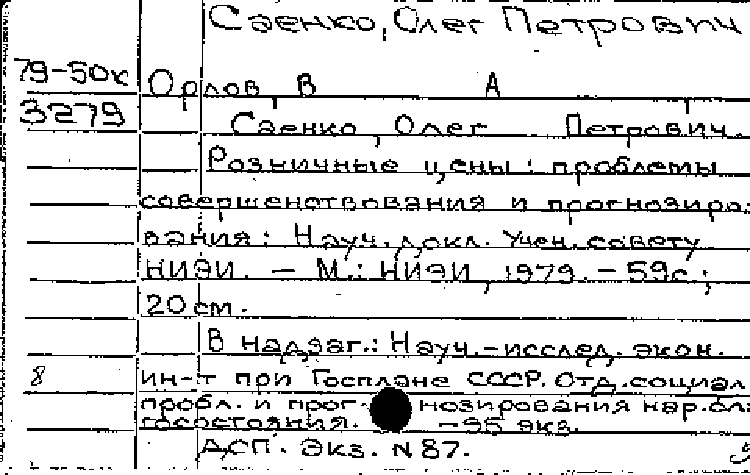 Саенко, Олег Петрович
79-50к
3279
Орлов В А
Саенко, Олег Петрович.
Розничные цены: проблемы
совершенствования и прогнозиро-
вания: Науч. докл. Учен. совету
НИЭИ. – М.: НИЭИ, 1979. – 59с.;
20 см.
В надзаг.: Науч.-исслед. экон.
8 ин-т при Госплане СССР. Отд. социал
пробл. и прогнозирования нар. бла-
госостояния. –95 экз.
ДСП. Экз. N 87.